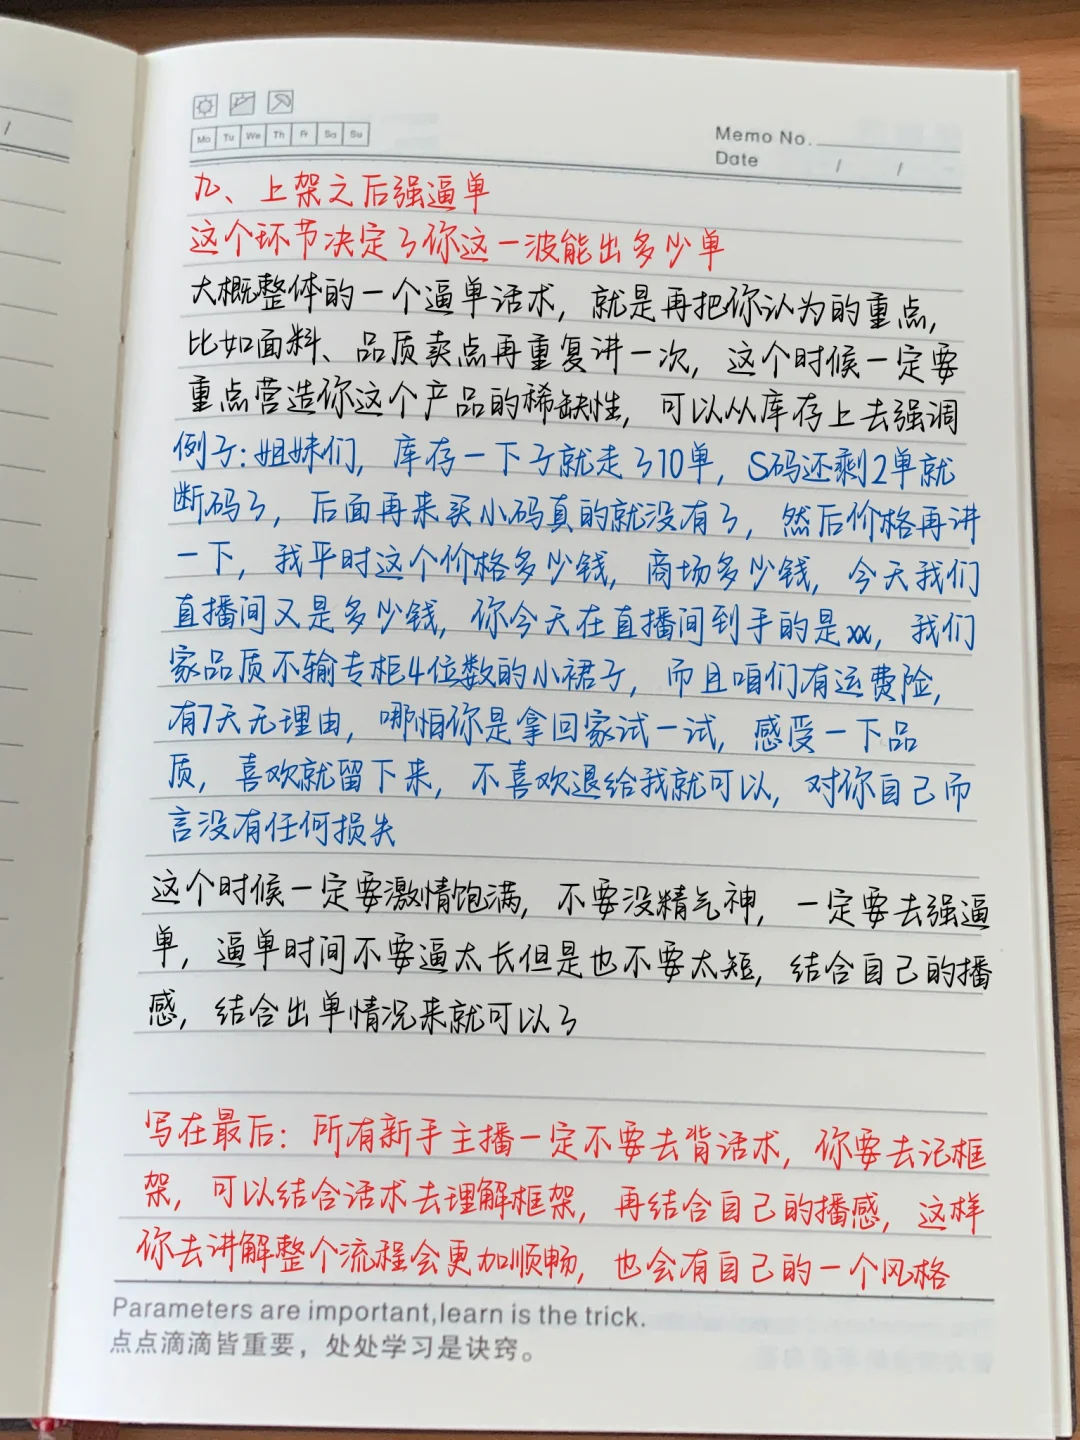 Mo Tu We Th Fr Sa Su
Memo No.
Date / /
/
九、上架之后强逼单
这个环节决定了你这一波能出多少单
大概整体的一个逼单话术，就是再把你认为的重点，
比如面料、品质卖点再重复讲一次，这个时候一定要
重点营造你这个产品的稀缺性，可以从库存上去强调
例子：姐妹们，库存一下子就走了10单，S码还剩2单就
断码了，后面再来买小码真的就没有了，然后价格再讲
一下，我平时这个价格多少钱，商场多少钱，今天我们
直播间又是多少钱，你今天在直播间到手的是xx，我们
家品质不输专柜4位数的小裙子，而且咱们有运费险，
有7天无理由，哪怕你是拿回家试一试，感受一下品
质，喜欢就留下来，不喜欢退给我就可以，对你自己而
言没有任何损失
这个时候一定要激情饱满，不要没精气神，一定要去强逼
单，逼单时间不要逼太长但是也不要太短，结合自己的播
感，结合出单情况来就可以了
写在最后：所有新手主播一定不要去背话术，你要去记框
架，可以结合话术去理解框架，再结合自己的播感，这样
你去讲解整个流程会更加顺畅，也会有自己的一个风格
Parameters are important,learn is the trick.
点点滴滴皆重要，处处学习是诀窍。